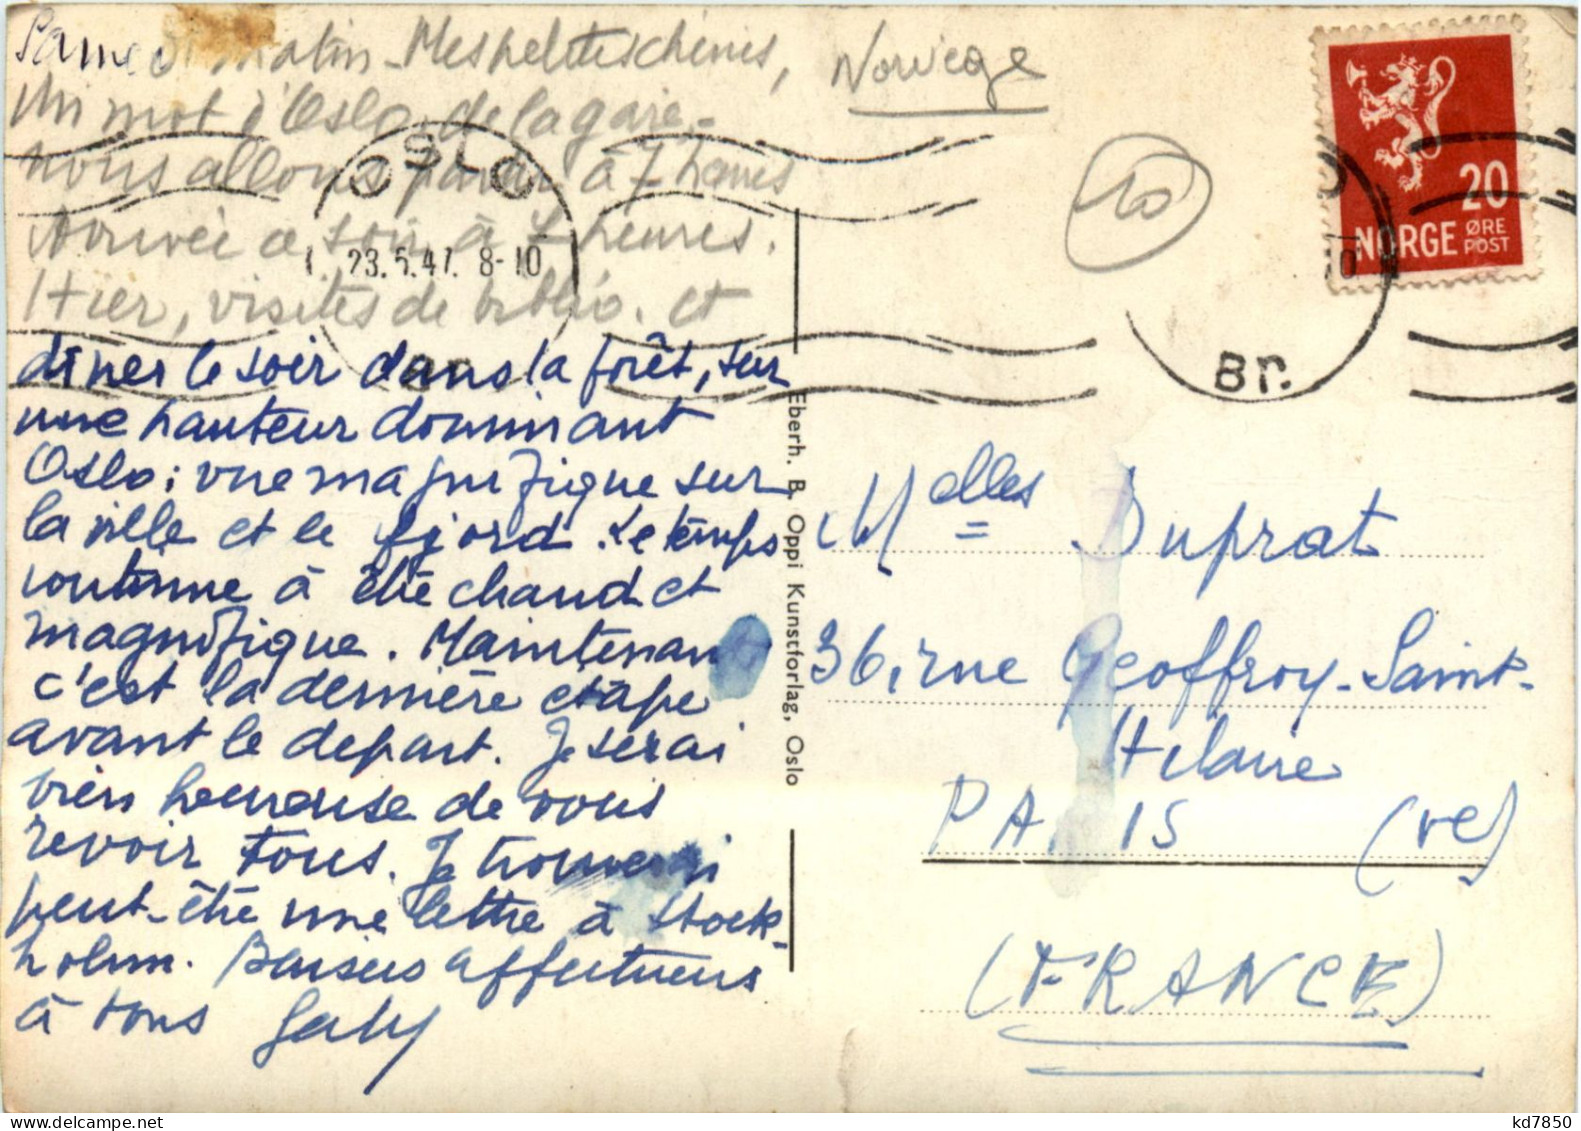 Samedi matin - Mes petites chéries,
Un mot d'Oslo, de la gare -
nous allons partir à 7 heures
Arrivée ce soir à heures.
Hier, visites de biblio. et
dîner le soir dans la forêt, sur
une hauteur dominant
Oslo ; vue magnifique sur
la ville et le fjord. Le temps
continue à être chaud et
magnifique. Maintenant
c'est la dernière étape
avant le départ. Je serai
bien heureuse de vous
revoir tous. Je trouverai
peut-être une lettre à Stock-
holm. Baisers affectueux
à tous Gaby
OSLO
23.5.47. 8-10
Br.
Norvège
10
20
NORGE ØRE
POST
Br.
Eberh. B. Oppi Kunstforlag, Oslo
Melles Duprat
36, rue Geoffroy-Saint-
Hilaire
PARIS (Ve)
(FRANCE)
kd7850